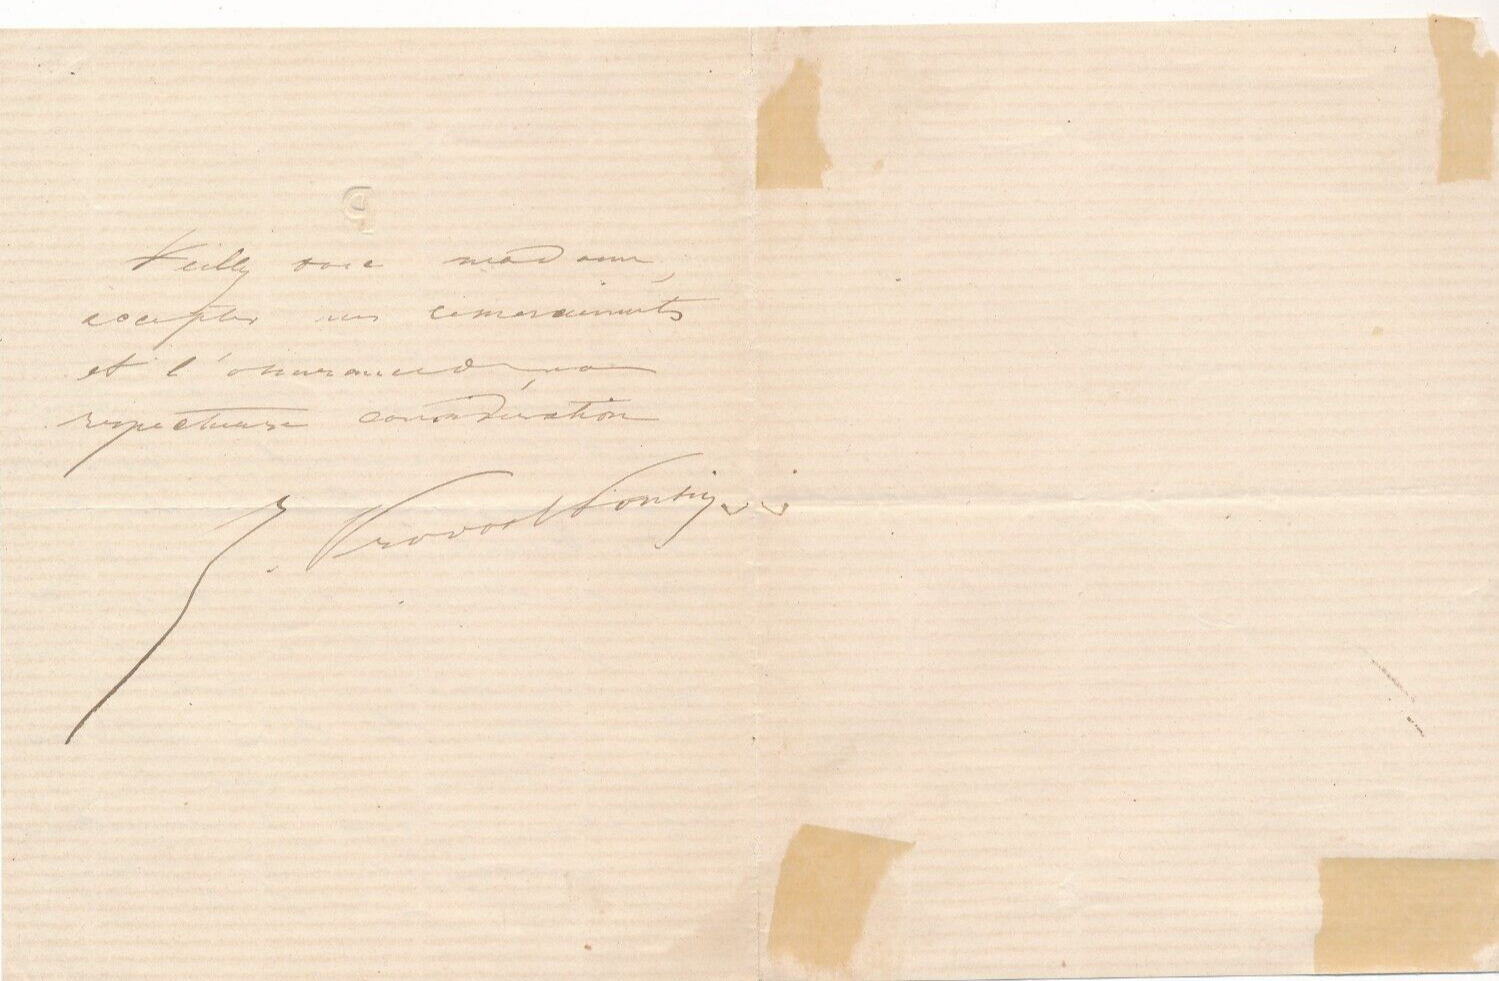 Veuillez donc madame,
accepter mes remerciements
et l'assurance de ma
respectueuse considération
J. Provost Ponsin